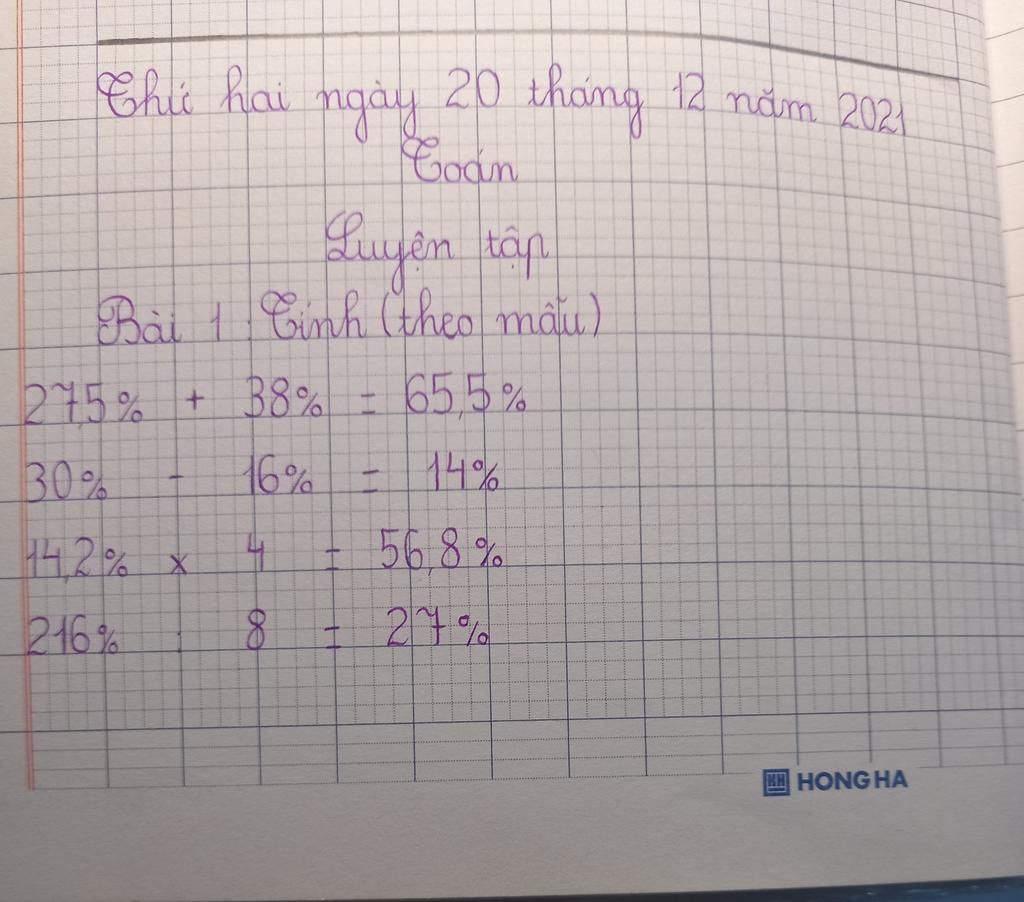 Thứ hai ngày 20 tháng 12 năm 2021
Toán
Luyện tập
Bài 1: Tính (theo mẫu)
27,5% + 38% = 65,5%
30% - 16% = 14%
14,2% x 4 = 56,8%
216% : 8 = 27%
HH HONG HA